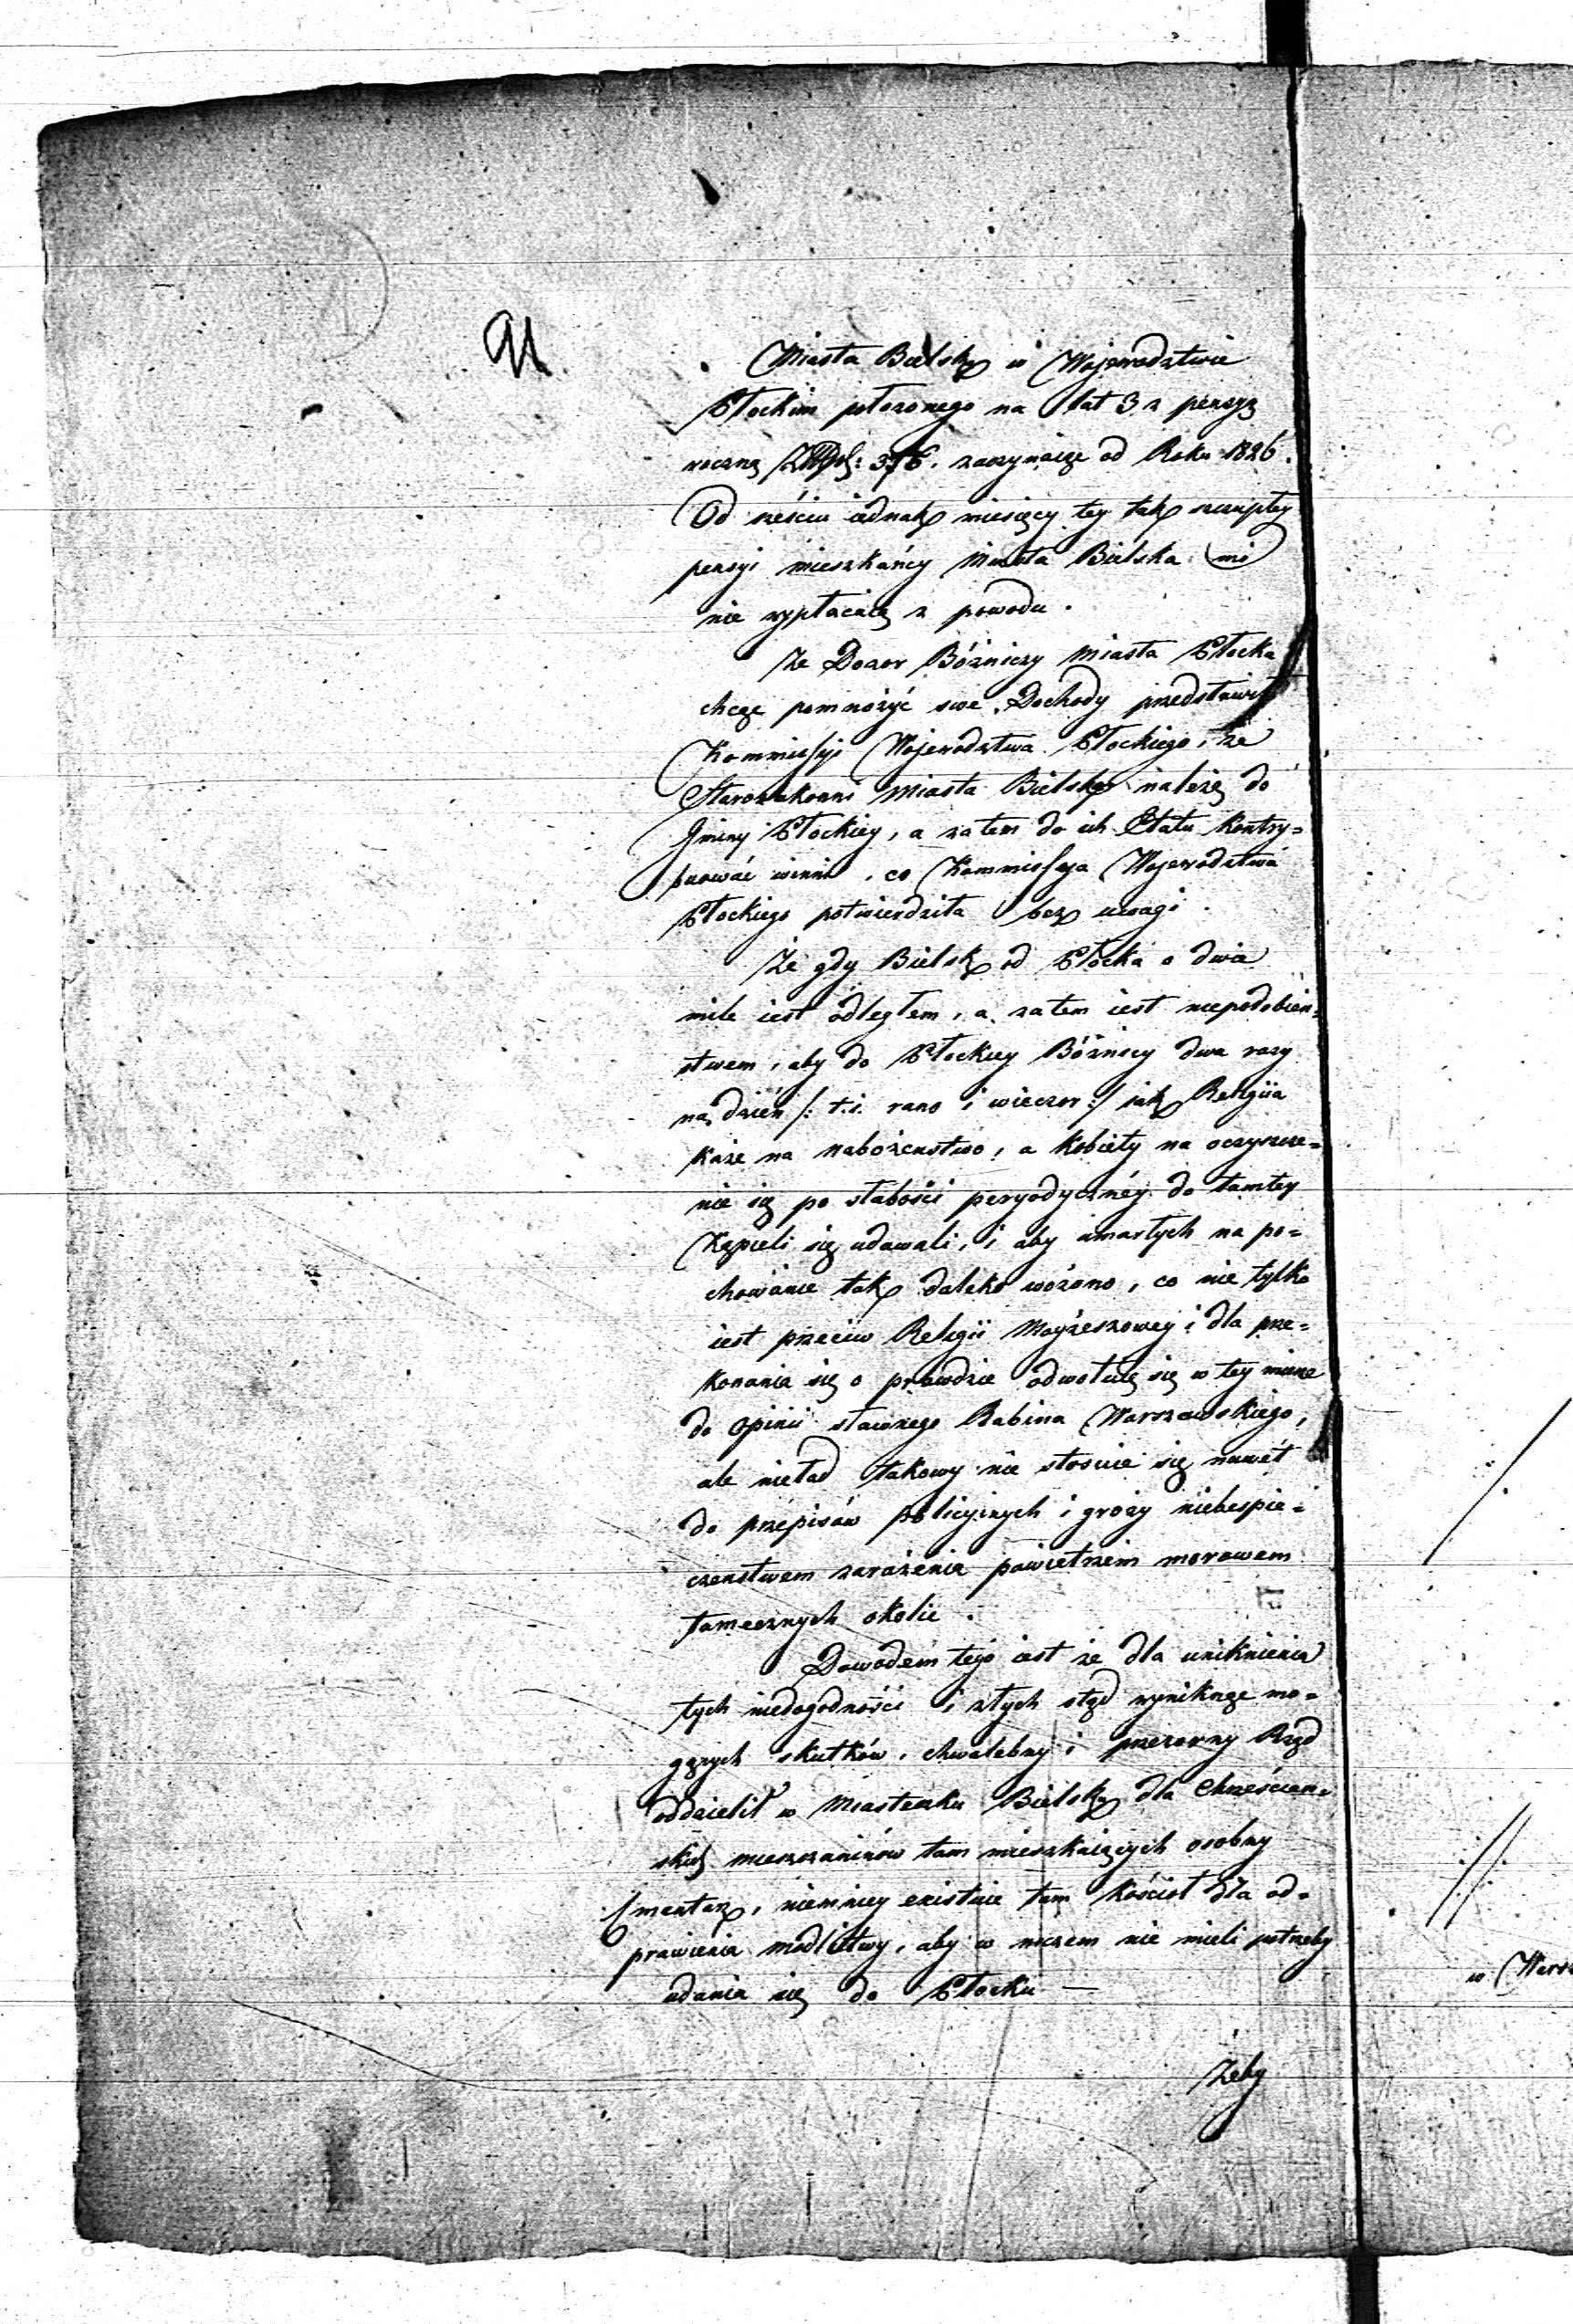 91
Miasta Bielsk w Województwie
Płockim położonego na lat 3 z pensyą
roczną Złłpol: 376. zaczynaiąc od Roku 1826.
Od sześciu iednak miesięcy tey tak szczupłey
pensyi mieszkańcy Miasta Bielska mi
nie wypłacaią z powodu.
Że Dozor Bóżniczy Miasta Płocka
chcąc pomnożyć swe Dochody przedstawił
Kommissyi Województwa Płockiego, że
Starozakonni Miasta Bielsk należą do
Gminy Płockiey, a zatem do ich Etatu kontry=
buować winni, co Kommissyja Województwa
Płockiego potwierdziła bez uwagi.
Że gdy Bielsk od Płocka o dwie
mile iest odległem, a zatem iest niepodobień=
stwem, aby do Płockiey Bóżnicy dwa razy
na dzień /: t.i. rano i wieczor :/ iak Religiia
każe na nabożeństwo, a kobiety na oczyszcze=
nie się po słabości peryodycznéy do tamtey
Kąpieli się udawali, i aby umarłych na po=
chowanie tak daleko wożono, co nie tylko
iest przeciw Religii Mayżeszowey i dla prze=
konania się o prawdzie odwołuię się w tey mierze
do opinii sławnego Rabina Warszawskiego,
ale nieład takowy nie stosuie się nawet
do przepisów policyinych i grozy niebespie=
czeństwem zarażenia powietrzem morowem
tamecznych okolic.
Dowodem tego iest że dla uniknienia
tych niedogodności i złych stąd wyniknąc mo=
gących skutków, chwalebny i przezorny Rząd
oddzielił w Miasteczku Bielsk dla Chrześcian=
skich mieszczaninów tam mieszkaiących osobny
Smentarz, niemniey existuie tam kościoł dla od=
prawienia modlitwy, aby w niczem nie mieli potrzeby
udania się do Płocka —
Żeby